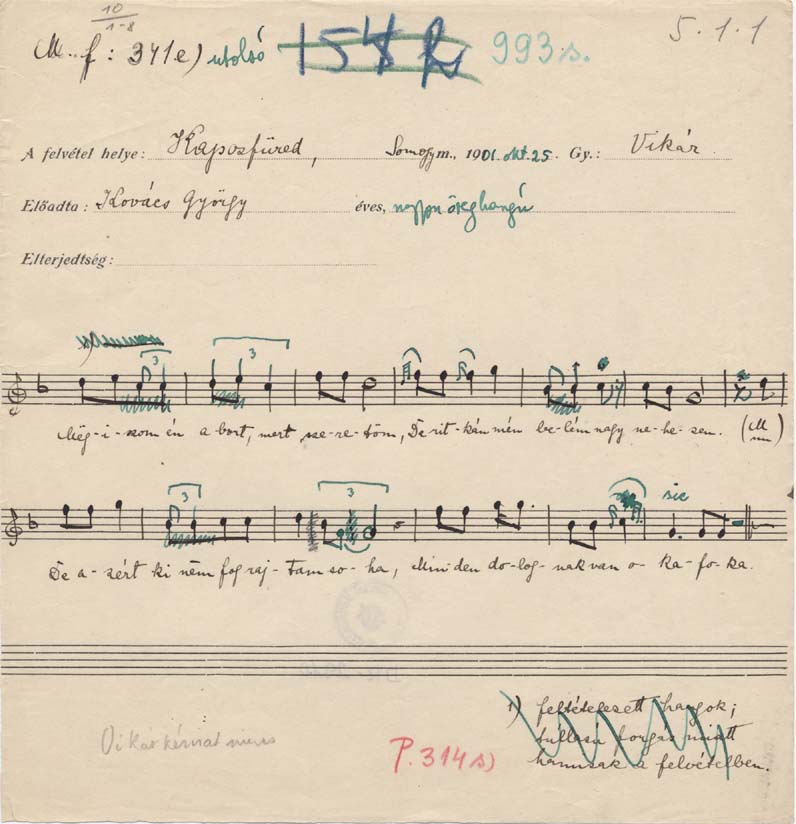 10
1-8
M. f: 341e) utolsó 993s. 5.1.1
A felvétel helye: Kaposfüred, Somogym., 1901. okt. 25. Gy.: Vikár.
Előadta: Kovács György éves, nagyon öreghangú
Elterjedtség:
3 3
Mëg-i-szom én a bort, mert sze-re-töm, De rit-kán mén be-lém nagy ne-he-zen. (M
3 3 sic
De a-zért ki nëm fog raj-tam so-ha, Minden do-log-nak van o-ka-fo-ka.
1) feltételezett hangok;
forgás miatt
hamisak a felvételben.
Vikár
P. 314s)